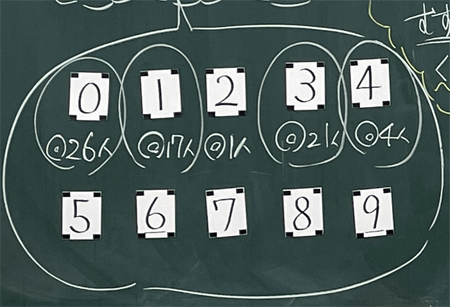 0 1 2 3 4
◎26人 ◎17人 ◎1人 ◎21人 ◎4人
5 6 7 8 9